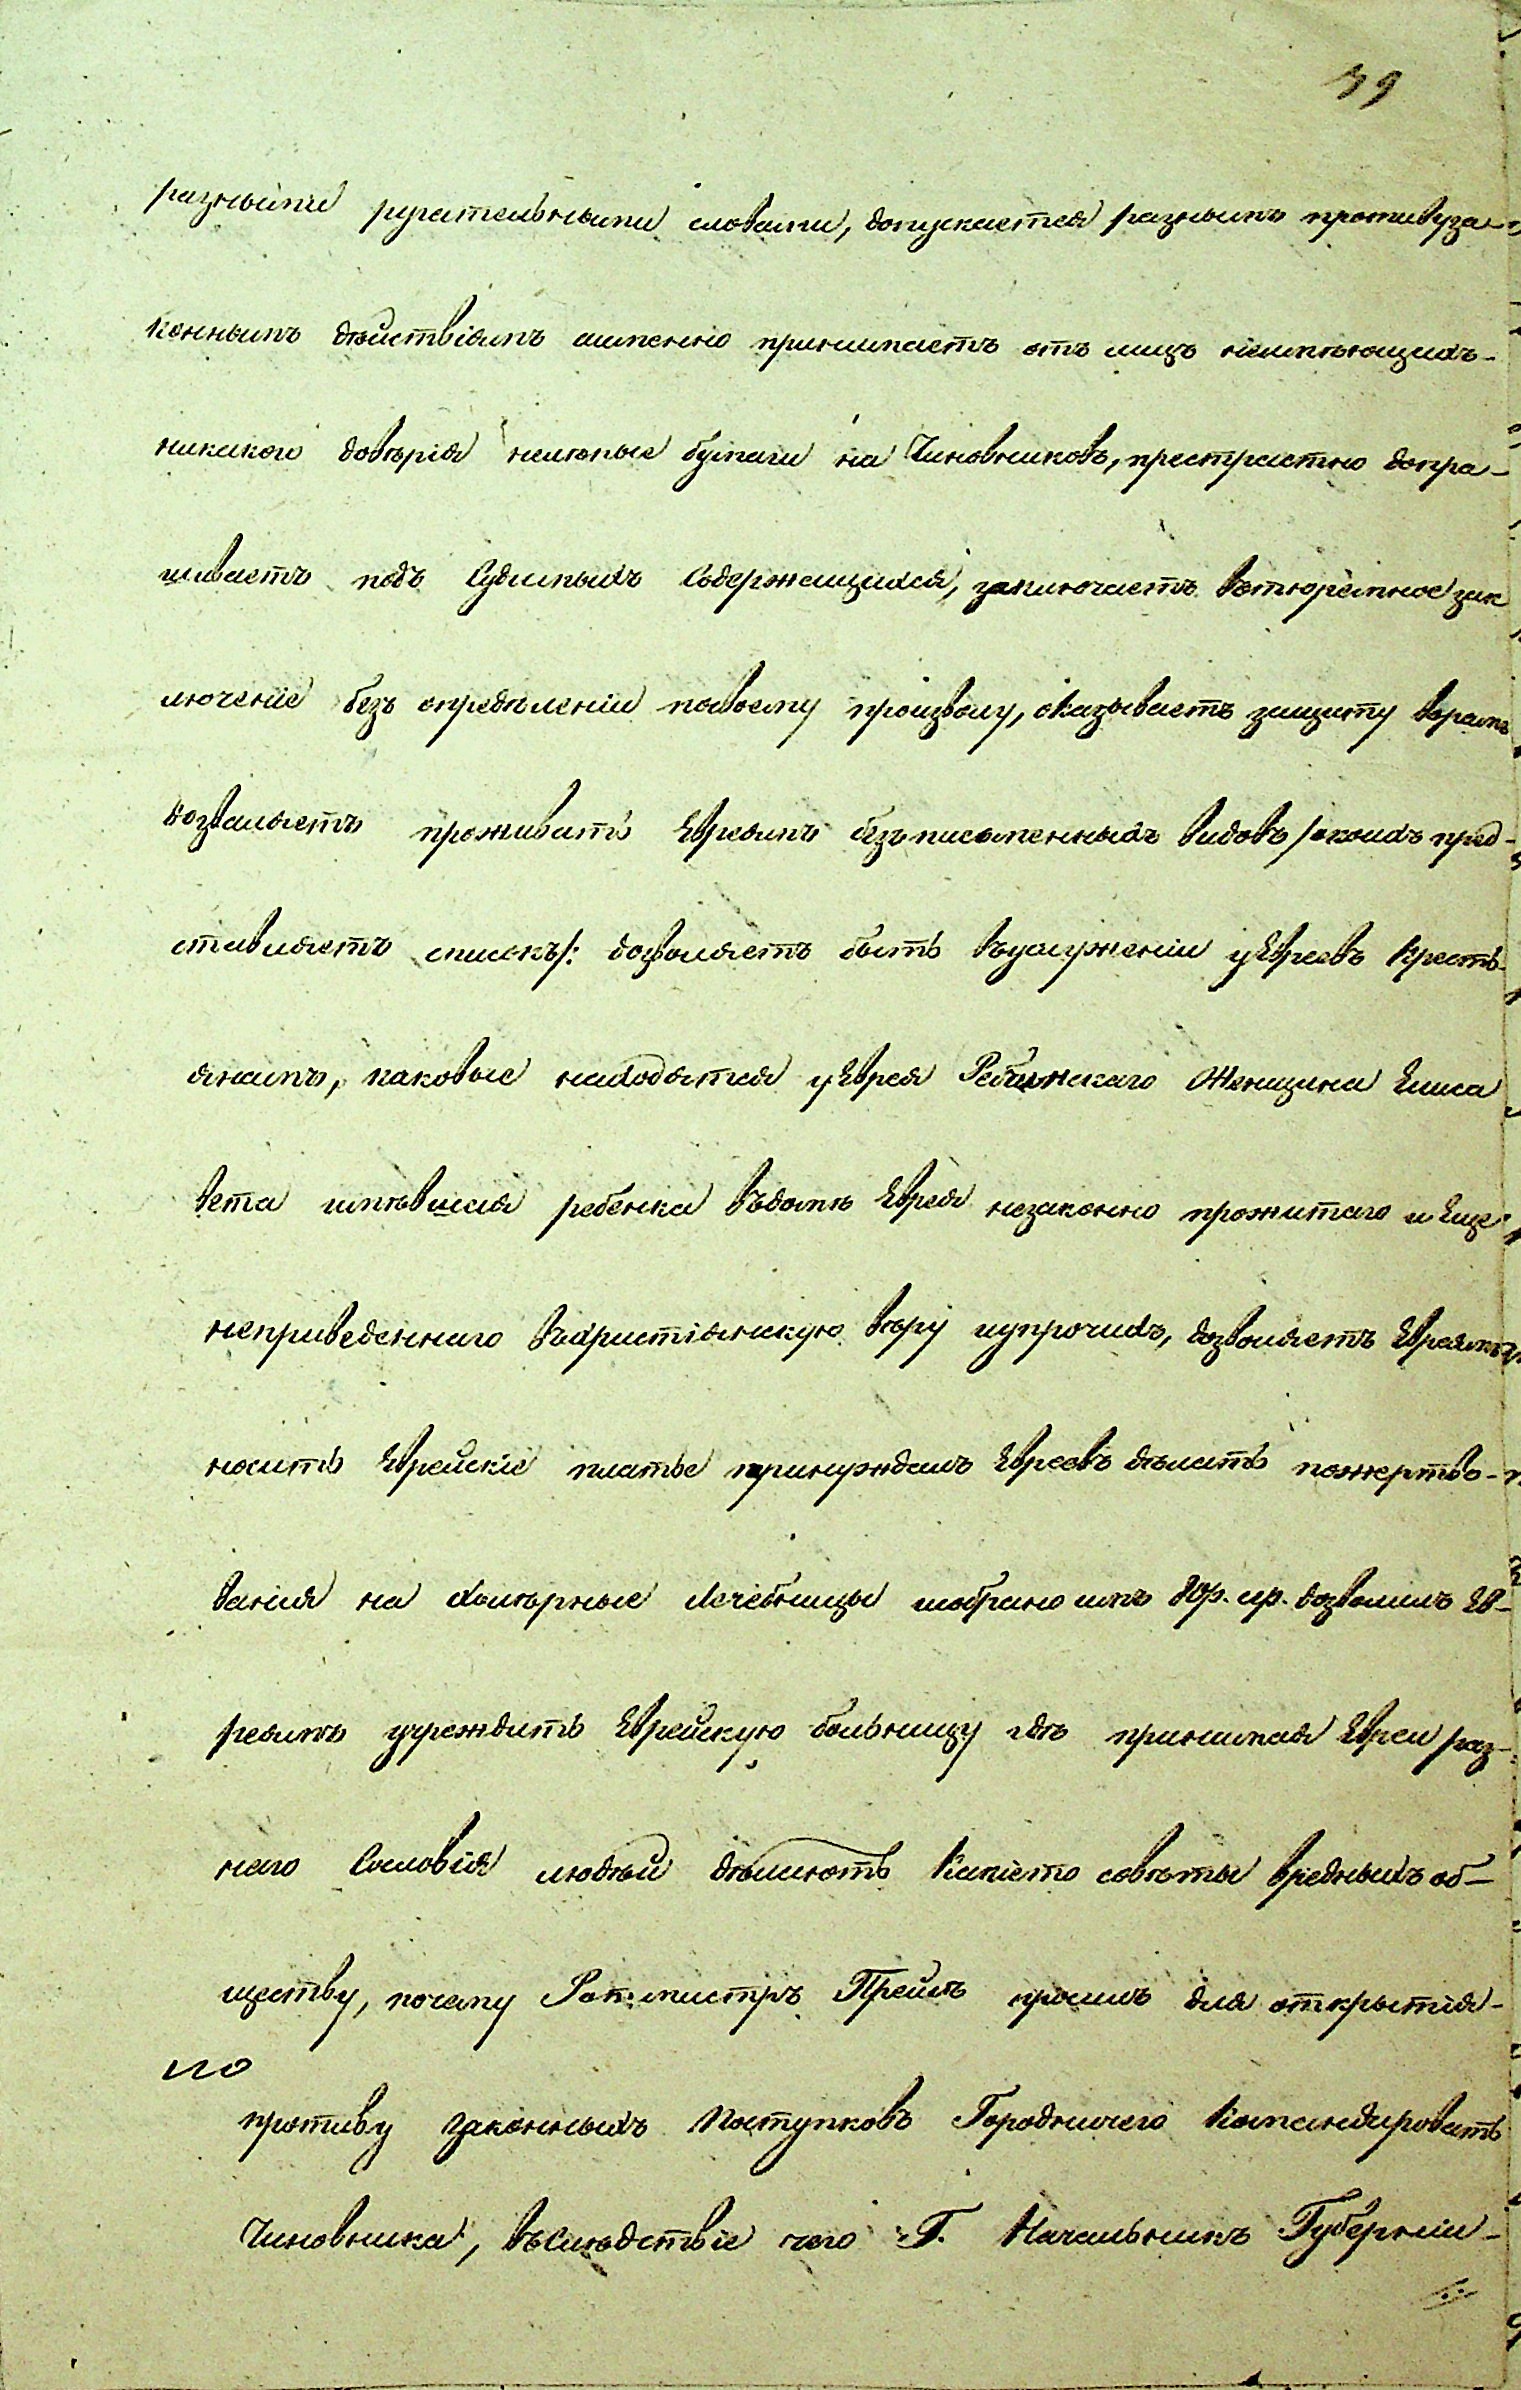 39
разными ругательными словами, допускается разнымъ противуза-
коннымъ действіямъ аименно принимаетъ отъ лицъ неимеющихъ-
никакои доверія нелепые бумаги на Чиновниковъ, престрастно допра-
шиваетъ подъ Судимыхъ Содержащихся, заключаетъ втюремное зак
лючение безъ определеніи посвоему произволу, оказываетъ защиту ворамъ
дозваляетъ проживать Евреямъ безъ писменныхъ видовъ /окоихъ пред-
ставляетъ списокъ/: дозволяетъ быть въуслуженіи уЕвреевъ Кресть-
янамъ, каковые находятся уЕврея Ребинскаго Женщина Елиса
вета имевшая ребенка въдоме Еврея незаконно прожитаго и Еще
неприведеннаго въхристіянскую веру иупрочихъ, дозволяетъ Евреямъ
носить Еврейскіе платье принуждалъ Евреевъ делать пожертво-
ванія на холерные Лечебницы исобрано имъ 10р. ср. дозволилъ Ев-
реямъ учреждить Еврейскую больницу где принимая Евреи раз-
наго Сословія людей делають Какіето советы вредныхъ об-
ществу, почему Ротмистръ Прейсъ просилъ для открытія-
по
противу законныхъ Поступковъ Городничего Командировать
Чиновника, вСледствіе чего Г. Начальникъ Губерніи-